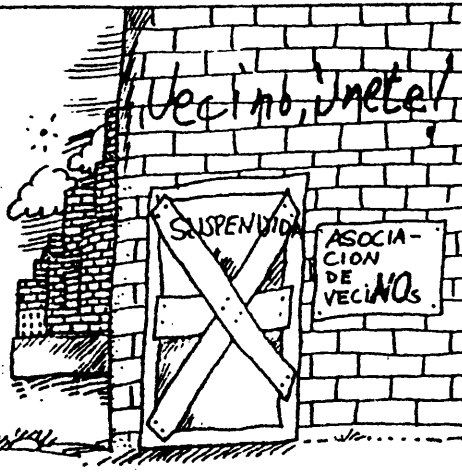 ¡Vecino, únete!
SUSPENDIDA
ASOCIA-
CION
DE
veciNOs